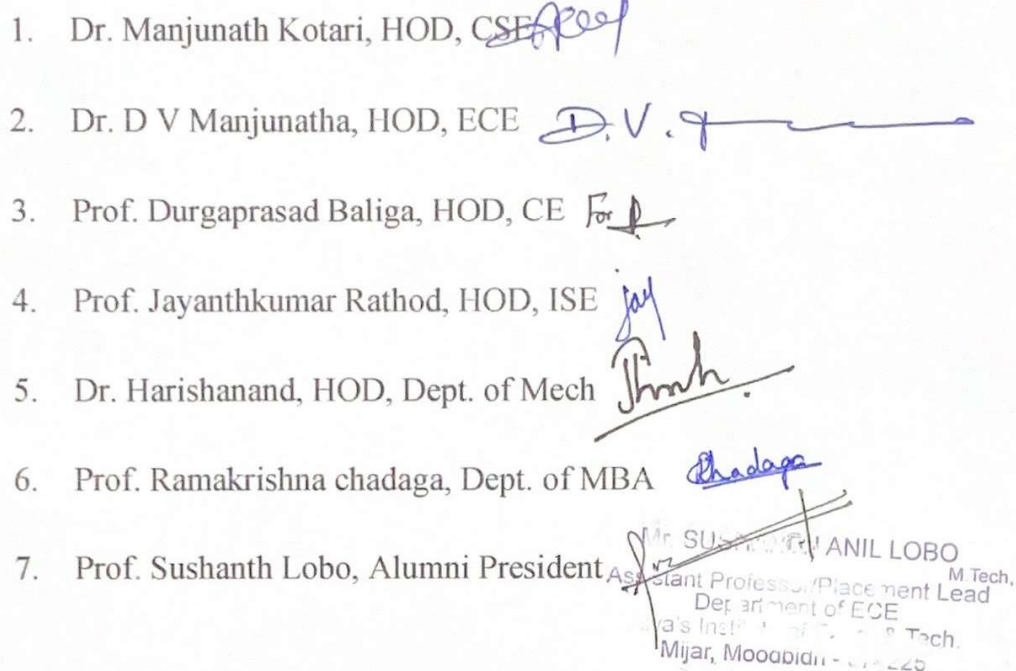 1. Dr. Manjunath Kotari, HOD, CSE
2. Dr. D V Manjunatha, HOD, ECE D.V.
3. Prof. Durgaprasad Baliga, HOD, CE For
4. Prof. Jayanthkumar Rathod, HOD, ISE Jay
5. Dr. Harishanand, HOD, Dept. of Mech
6. Prof. Ramakrishna chadaga, Dept. of MBA Chadaga
7. Prof. Sushanth Lobo, Alumni President
Mr. ANIL LOBO
M.Tech,
Assistant Professor/Placement Lead
Department of ECE
Tech.
Mijar,